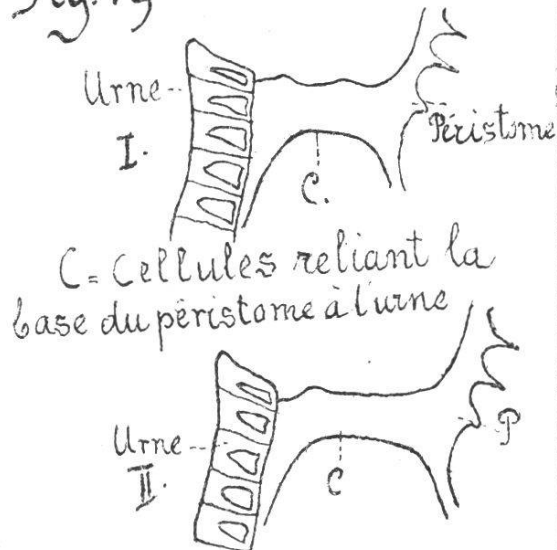 Fig. 19
Urne
Péristome
I.
C.
C = Cellules reliant la
base du péristome à l'urne
Urne
P
II.
C